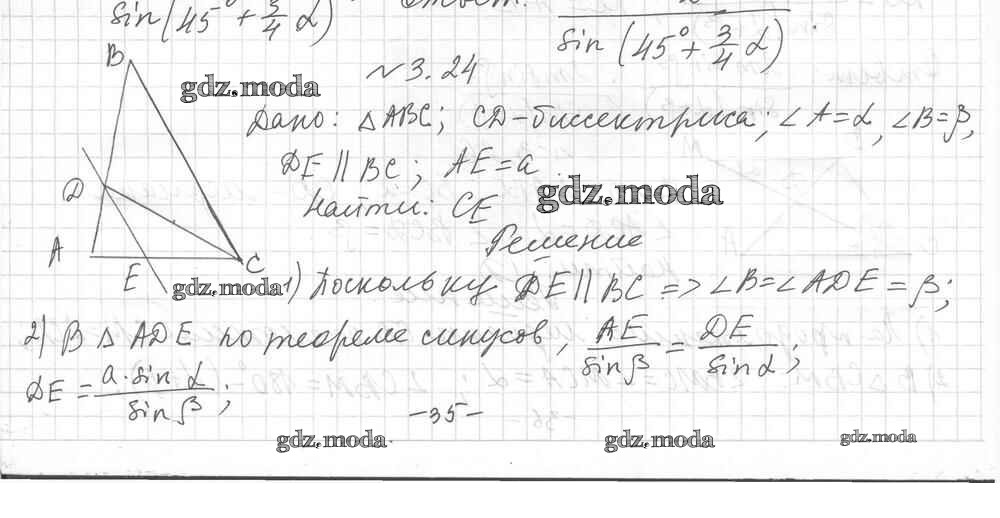 sin(45° + 3/4 α)
sin(45° + 3/4 α).
B
№ 3.24
gdz.moda
Дано: △ABC; CD-биссектриса; ∠A=α, ∠B=β,
DE ∥ BC; AE=a.
gdz.moda
D
Найти: CE
A
Решение
E
C
gdz.moda
1) Поскольку DE∥BC => ∠B=∠ADE=β;
2) В △ ADE по теореме синусов, AE/sin β = DE/sin α;
DE = a·sin α/sin β;
-35-
gdz.moda
gdz.moda
gdz.moda